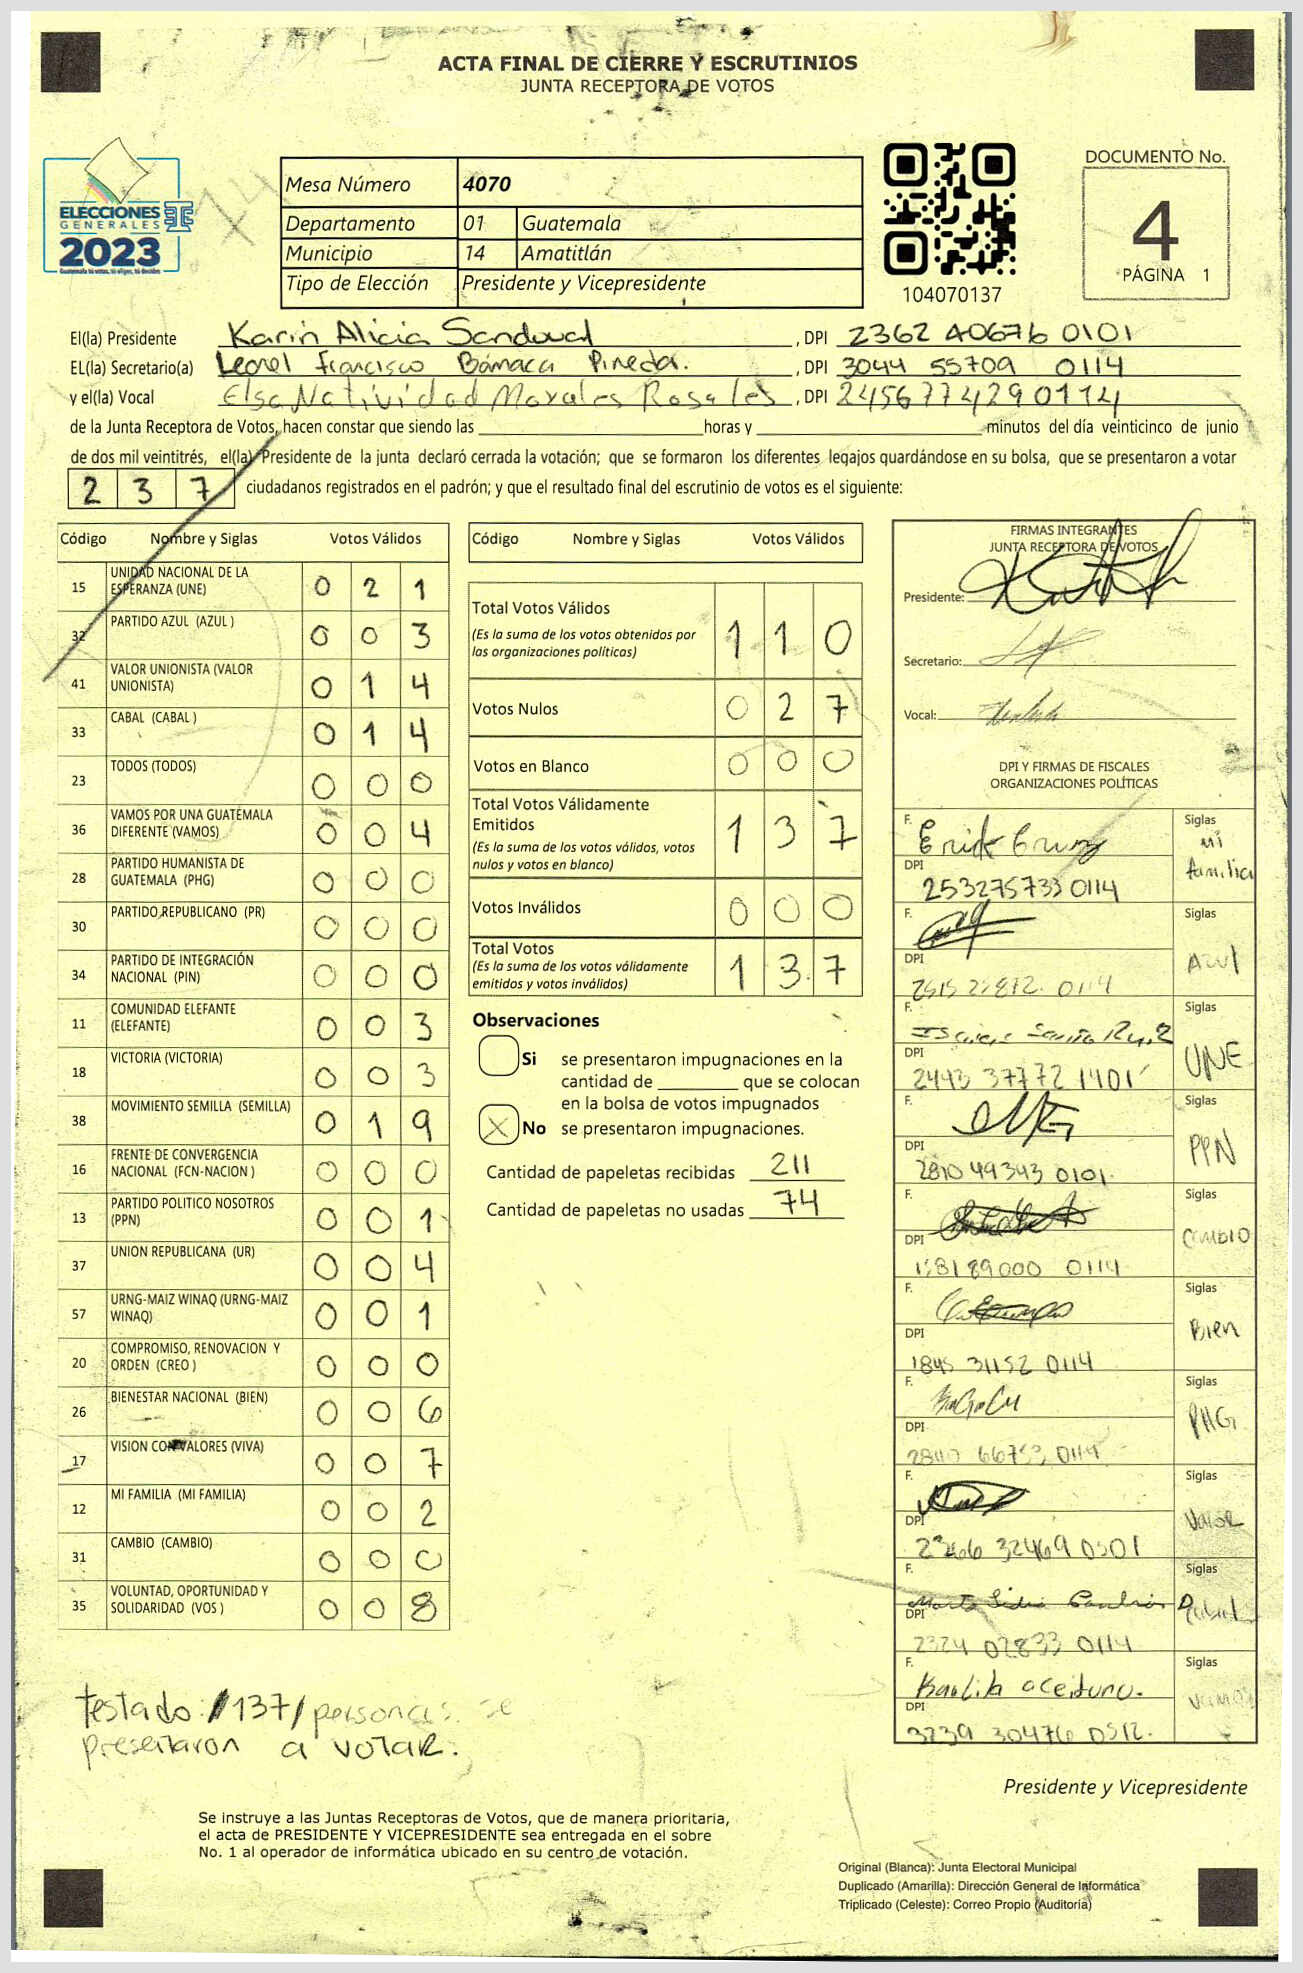 ACTA FINAL DE CIERRE Y ESCRUTINIOS
JUNTA RECEPTORA DE VOTOS
ELECCIONES
GENERALES
2023
Mesa Número 4070
Departamento 01 Guatemala
Municipio 14 Amatitlán
Tipo de Elección Presidente y Vicepresidente
104070137
DOCUMENTO No.
4
PÁGINA 1
El(la) Presidente Karin Alicia Sandoval, DPI 2362 40676 0101
EL(la) Secretario(a) Leonel Francisco Bámaca Pineda., DPI 3044 55709 0114
y el(la) Vocal Elsa Natividad Morales Rosales, DPI 2456774290114
de la Junta Receptora de Votos, hacen constar que siendo las ____ horas y ____ minutos del día veinticinco de junio
de dos mil veintitrés, el(la) Presidente de la junta declaró cerrada la votación; que se formaron los diferentes legajos quardándose en su bolsa, que se presentaron a votar
237 ciudadanos registrados en el padrón; y que el resultado final del escrutinio de votos es el siguiente:
Código Nombre y Siglas Votos Válidos
15 UNIDAD NACIONAL DE LA ESPERANZA (UNE) 0 2 1
32 PARTIDO AZUL (AZUL ) 0 0 3
41 VALOR UNIONISTA (VALOR UNIONISTA) 0 1 4
33 CABAL (CABAL ) 0 1 4
23 TODOS (TODOS) 0 0 0
36 VAMOS POR UNA GUATEMALA DIFERENTE (VAMOS) 0 0 4
28 PARTIDO HUMANISTA DE GUATEMALA (PHG) 0 0 0
30 PARTIDO REPUBLICANO (PR) 0 0 0
34 PARTIDO DE INTEGRACIÓN NACIONAL (PIN) 0 0 0
11 COMUNIDAD ELEFANTE (ELEFANTE) 0 0 3
18 VICTORIA (VICTORIA) 0 0 3
38 MOVIMIENTO SEMILLA (SEMILLA) 0 1 9
16 FRENTE DE CONVERGENCIA NACIONAL (FCN-NACION ) 0 0 0
13 PARTIDO POLITICO NOSOTROS (PPN) 0 0 1
37 UNION REPUBLICANA (UR) 0 0 4
57 URNG-MAIZ WINAQ (URNG-MAIZ WINAQ) 0 0 1
20 COMPROMISO, RENOVACION Y ORDEN (CREO ) 0 0 0
26 BIENESTAR NACIONAL (BIEN) 0 0 6
17 VISION CON VALORES (VIVA) 0 0 7
12 MI FAMILIA (MI FAMILIA) 0 0 2
31 CAMBIO (CAMBIO) 0 0 0
35 VOLUNTAD, OPORTUNIDAD Y SOLIDARIDAD (VOS ) 0 0 8
testado: /137/ personas se
presentaron a votar.
Código Nombre y Siglas Votos Válidos
Total Votos Válidos 1 1 0
(Es la suma de los votos obtenidos por
las organizaciones políticas)
Votos Nulos 0 2 7
Votos en Blanco 0 0 0
Total Votos Válidamente
Emitidos 1 3 7
(Es la suma de los votos válidos, votos
nulos y votos en blanco)
Votos Inválidos 0 0 0
Total Votos 1 3 7
(Es la suma de los votos válidamente
emitidos y votos inválidos)
Observaciones
Si se presentaron impugnaciones en la
cantidad de ____ que se colocan
en la bolsa de votos impugnados
X No se presentaron impugnaciones.
Cantidad de papeletas recibidas 211
Cantidad de papeletas no usadas 74
FIRMAS INTEGRANTES
JUNTA RECEPTORA DE VOTOS
Presidente:
Secretario:
Vocal:
DPI Y FIRMAS DE FISCALES
ORGANIZACIONES POLÍTICAS
F. Erick Cruz Siglas Mi familia
DPI 253275733 0114
F. Siglas Azul
DPI 0114
F. Siglas UNE
DPI 2443 37772 1401
F. Siglas PPN
DPI 2810 49343 0101
F. Siglas Cambio
DPI 158189000 0114
F. Siglas Bien
DPI 1845 31152 0114
F. Siglas PHG
DPI 0114
F. Siglas Valor
DPI 2366 32469 0501
F. Siglas
DPI 2324 02833 0114
F. Siglas Vamos
DPI 3239 30476
Presidente y Vicepresidente
Se instruye a las Juntas Receptoras de Votos, que de manera prioritaria,
el acta de PRESIDENTE Y VICEPRESIDENTE sea entregada en el sobre
No. 1 al operador de informática ubicado en su centro de votación.
Original (Blanca): Junta Electoral Municipal
Duplicado (Amarilla): Dirección General de Informática
Triplicado (Celeste): Correo Propio (Auditoría)